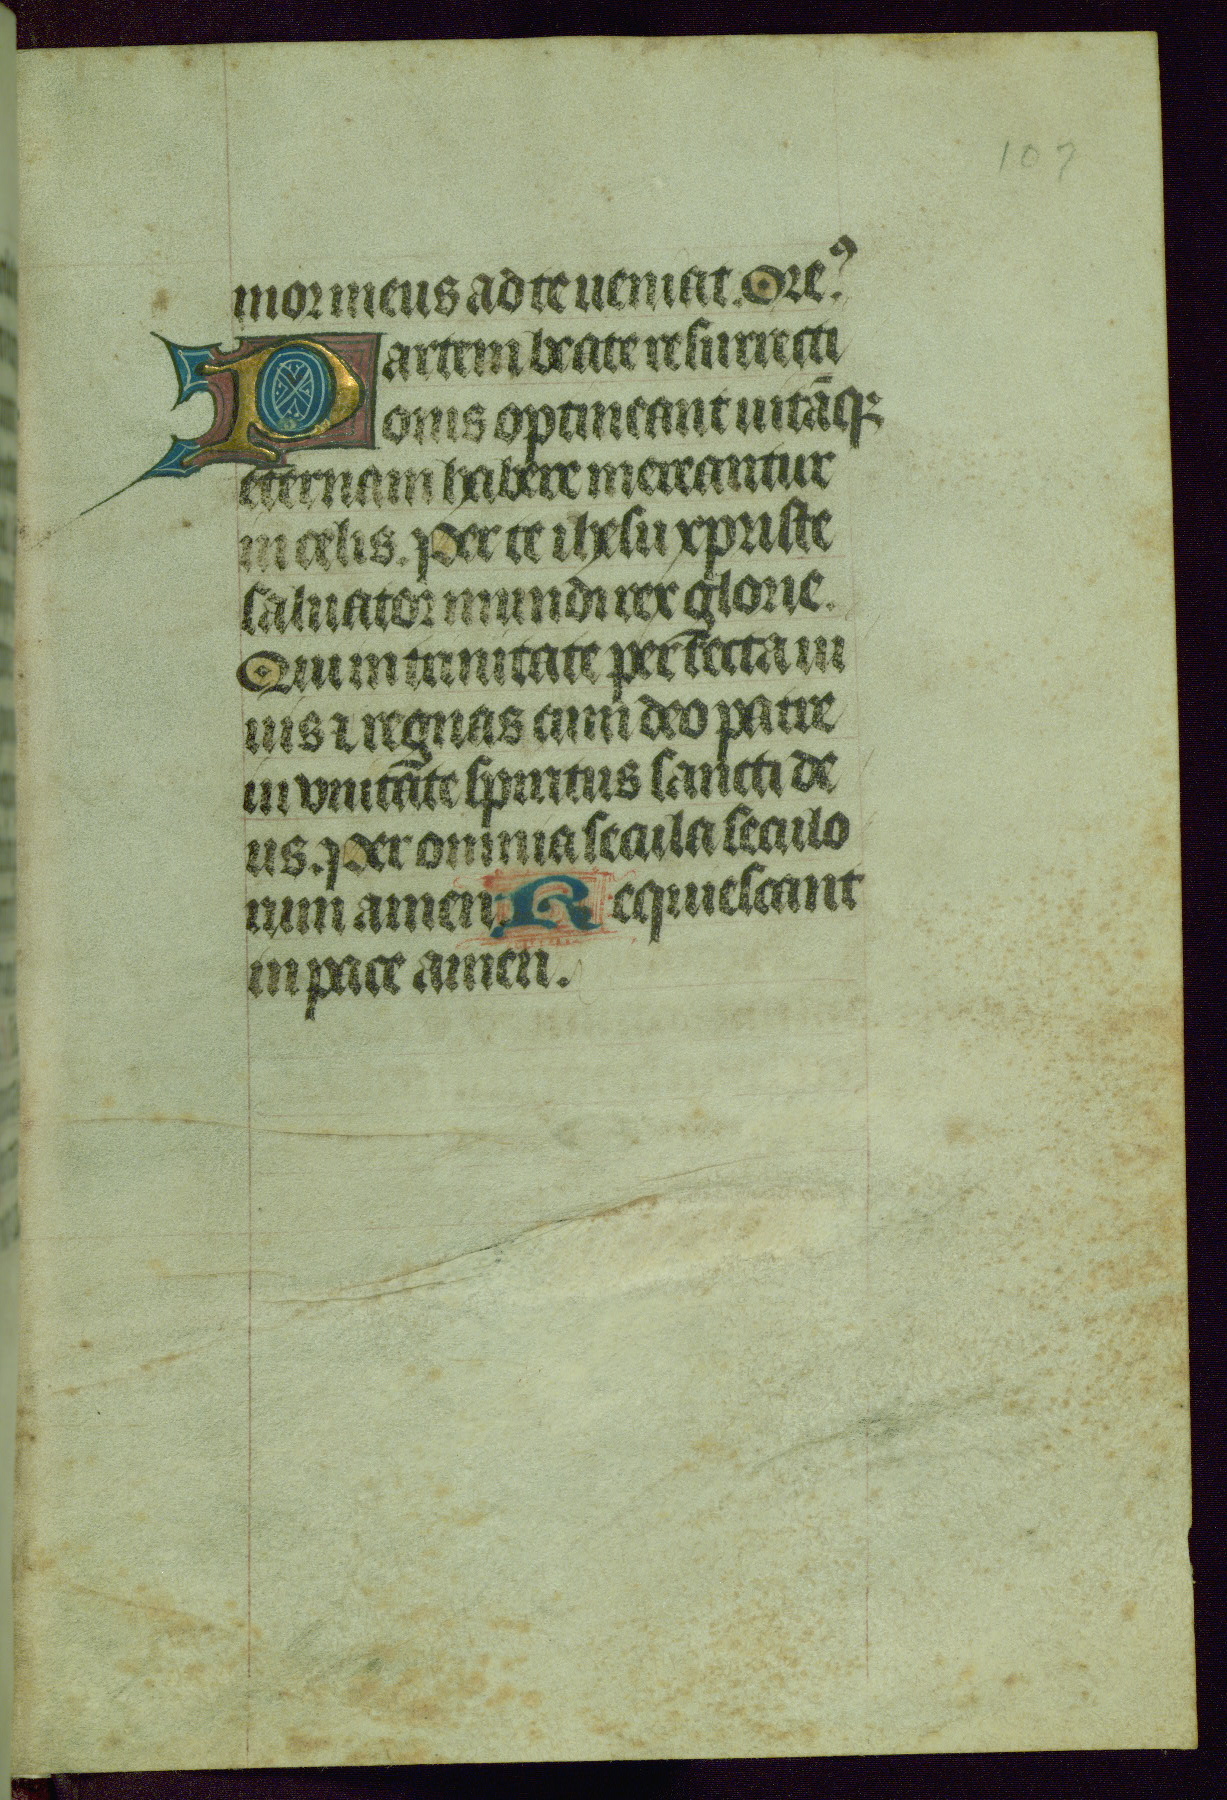 107
mor meus ad te ueniat. Ore⁹.
Partem beate resurrecti
onis optineant uitāq;
eternam habere mereantur
in celis. Per te ihesu xpriste
saluator mundi rex glorie.
Qui in trinitate perfecta ui
uis ⁊ regnas cum deo patre
in vnitate spiritus sancti de
us. Per omnia secula seculo
rum amen. Requiescant
in pace amen.